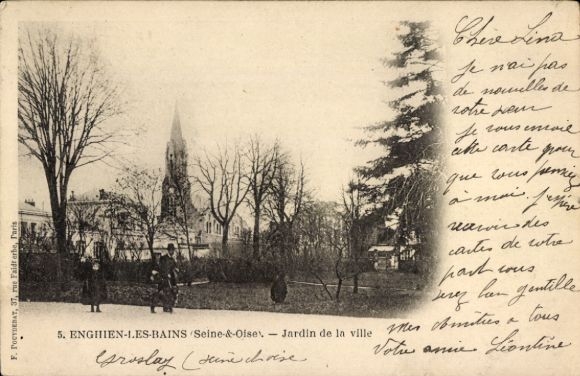 Chère Lina
je n'ai pas
de nouvelles de
votre sœur
je vous envoie
cette carte pour
que vous pensez
à moi. j'espère
recevoir des
cartes de votre
part vous
serez bien gentille
Mes amitiés à tous
Votre amie Léontine
5. ENGHIEN-LES-BAINS (Seine-&-Oise). - Jardin de la ville
Groslay (seine &oise
F. POUYDEBAT, 37, rue Faidherbe, Paris